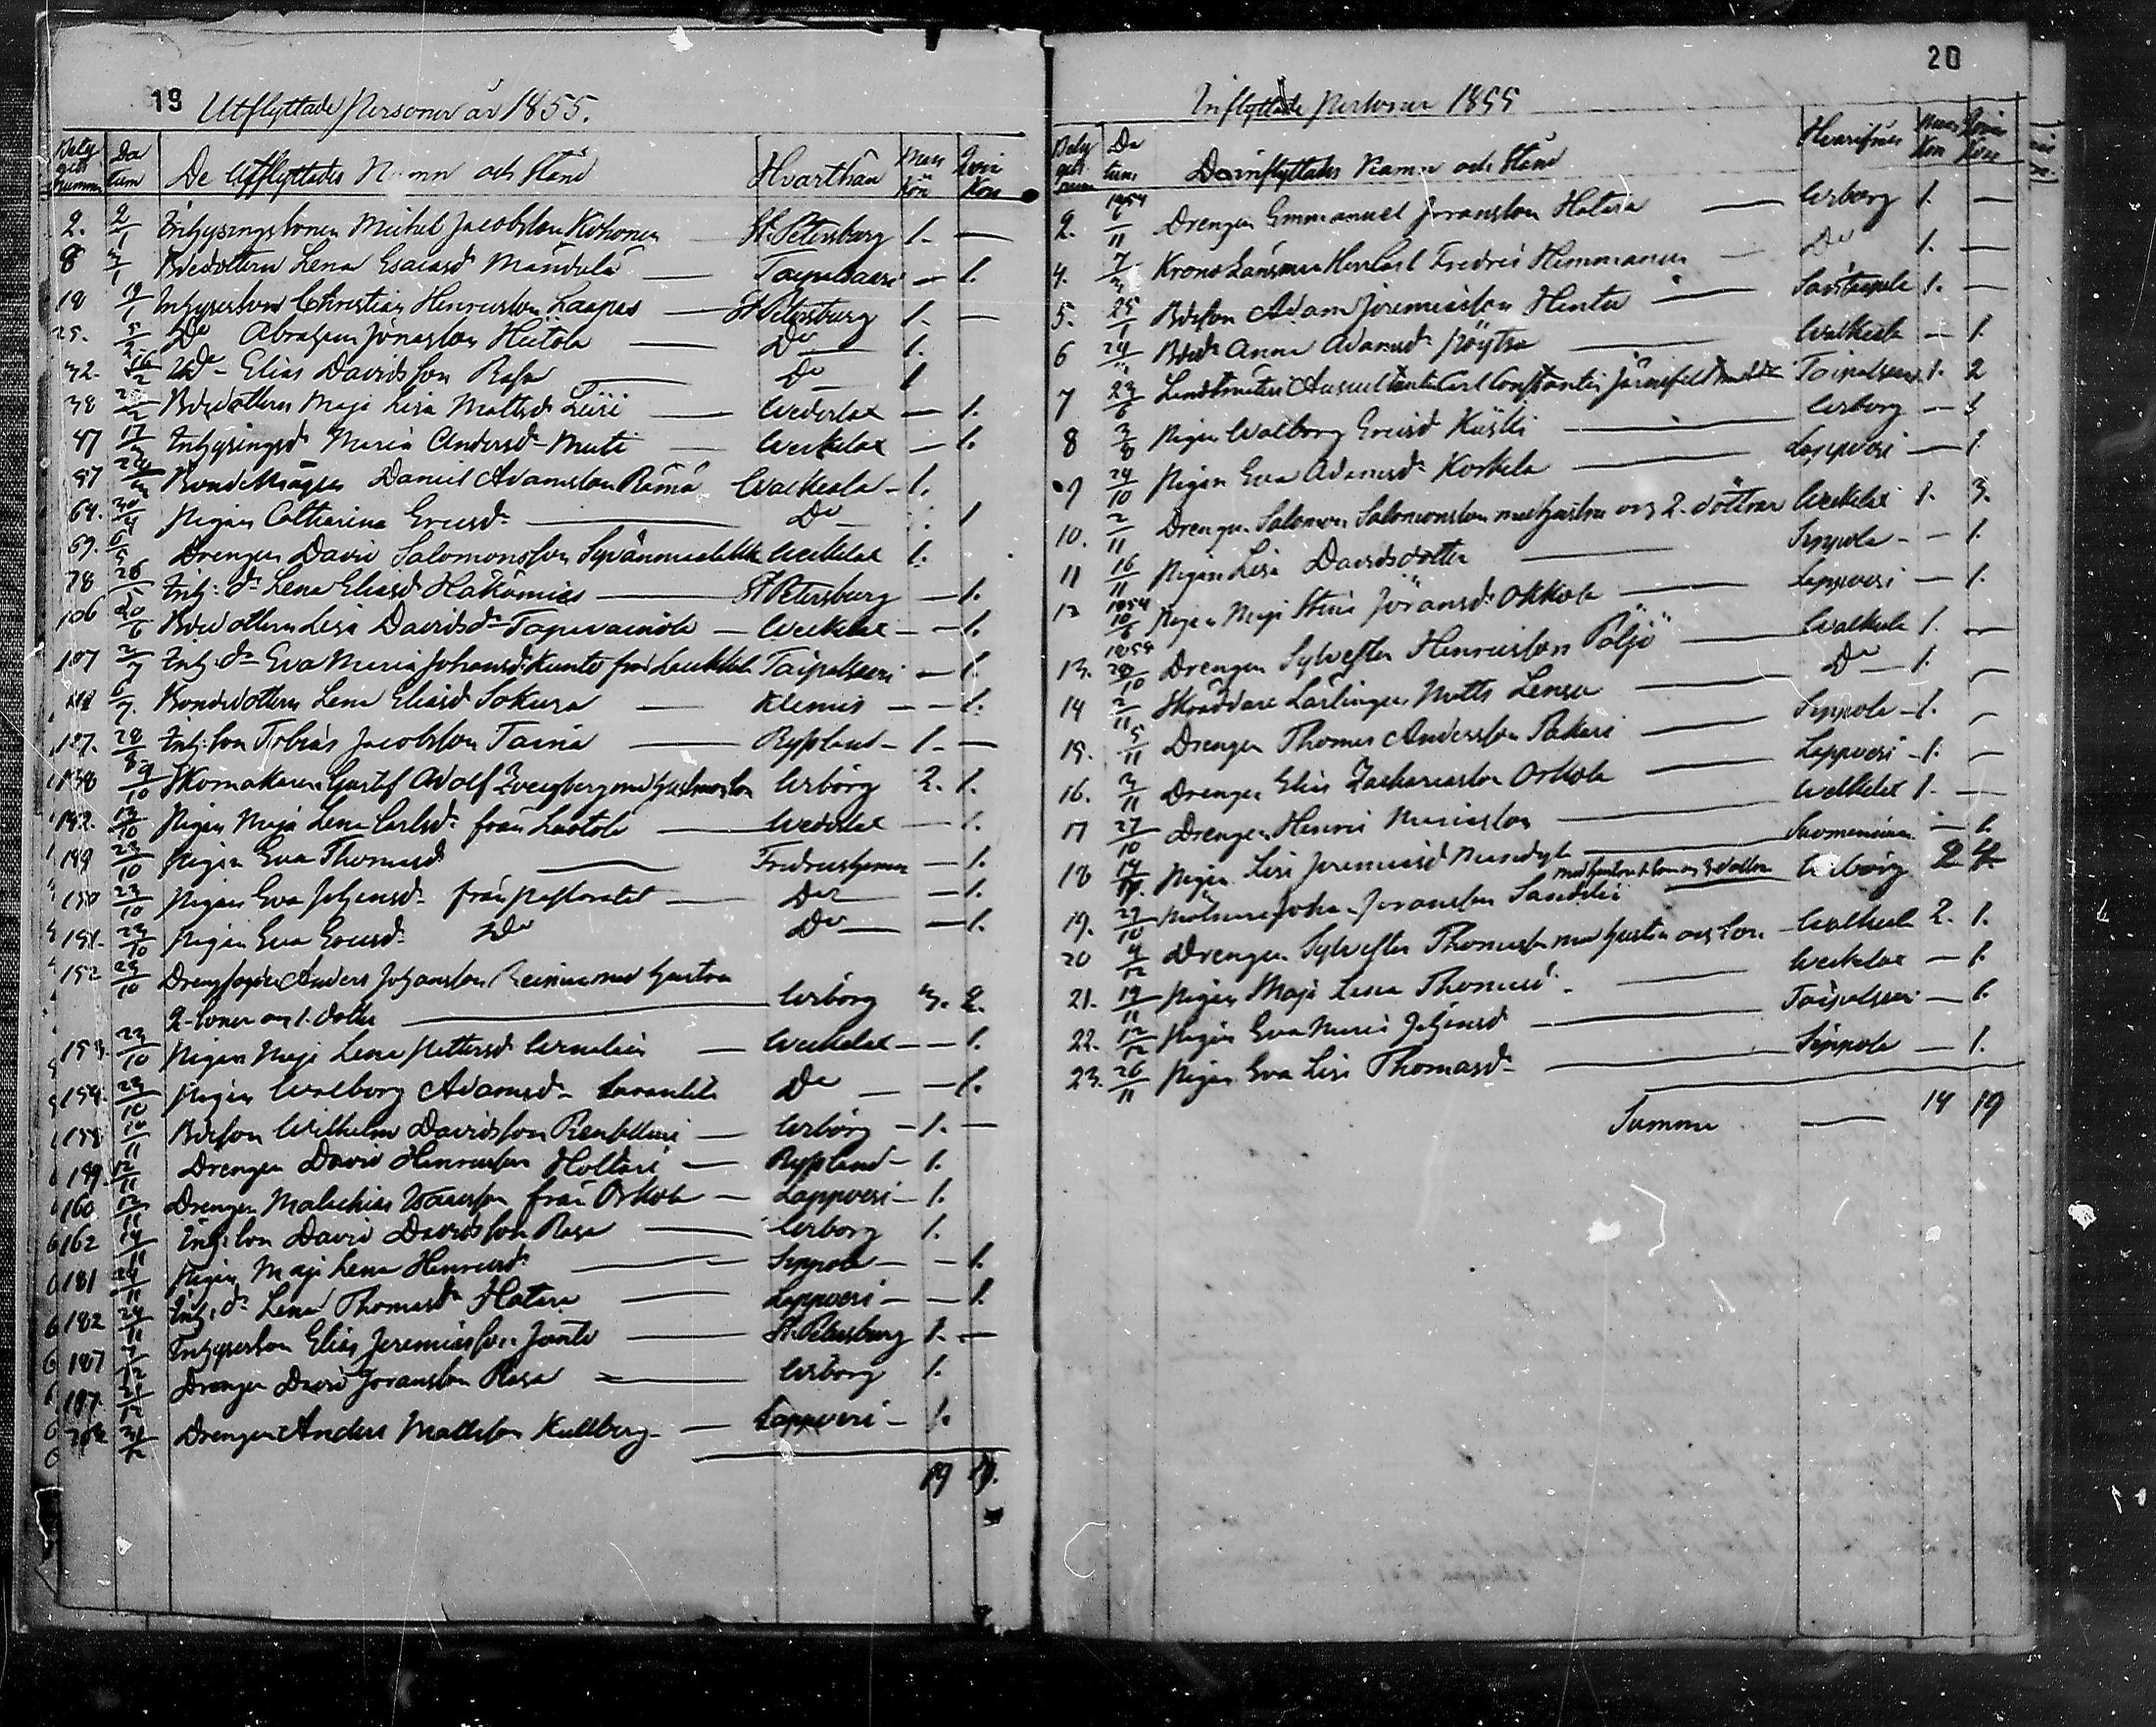 19 Utflyttade Personer år 1855.
De Utflyttades Namn och Stånd Hvarthän Man kön Qvin kön
2. 2/1 Inhysingssonen Michel Jacobsson Kohonen St. Petersburg 1. —
8 3/1 Bdedottern Lena Esaiasd. — Taipalsaari — 1.
18 19/1 Christian Henricsson St Petersburg 1. —
25. 5/2 Do Abraham Jönasson Do 1.
32. 16/2 Do Elias Davidsson Rasa Do 1
38 Bdedottern Maja Lisa Mattsd. — Wederlax — 1.
47 17/3 Inhysingsd. Maria Andersd. Muti — Weckelax — 1.
57 Daniel Adamsson Rämä Walkeala — 1.
64. 30/4 Pigan Catharina Ericsd. Do 1
69. 6/5 Drengen David Salomonsson Weckelax 1.
78 26/5 Inh: dr Lena Eliasd. St Petersburg — 1.
106 20/6 Bdedottern Lisa Davidsd. — Weckelax — — 1.
107 2/7 Inh: dr Eva Maria Johansd. Kunto från Taipalsaari — 1.
6/7 Bondedottern Lena Eliasd. Sokura — Klemis — — 1.
127. 28/8 Inh: son Tobias Jacobsson Taina — Ryssland — 1 —
138 9/10 Skomakaren Gustf Adolf Wiborg 2. 1.
142. 13/10 Pigan Maja Lena Carlsd. från — Wederlax — 1.
149 23/10 Pigan Eva Thomasd. Fredrikshamn — 1.
150 23/10 Pigan Eva Johansd. från Pastoratet — Do — 1.
151. 23/10 Pigan Eva Ericsd. Do Do — 1.
152 29/10 Anders Johansson med hustru
2 söner och 1. dotter Wiborg 3. 2.
153. 23/10 Pigan Maja Lena Pettersd. — Weckelax — — 1.
154. 23/10 Pigan Walborg Adamsd. Do — — 1.
158 10/11 Bdeson Wilhelm Davidsson — Wiborg — 1. —
159. 12/11 Drengen David Henricsson Holttari — Ryssland — 1.
160 12/11 Drengen Malachias från Orkola — Lappvesi — 1.
162 14/11 Inh: son David Davidsson Rasa — Wiborg 1.
181 24/11 Pigan Maja Lena Henricsd. Sippola — — 1.
182 24/11 Inh: dr Lena Thomasd. Hatara — Lappvesi — — 1.
187 Elias Jeremiasson — St. Petersburg 1. —
197. Drengen David Göransson Rasa — Wiborg 1.
Drengen Anders Mattsson Kullberg — Lappvesi — 1.
19 19.
20
Inflyttade Personer 1855
De inflyttades Namn och Stånd Hvarifrån Man kön Qvin kön
2. 1854 6/11 Drengen Emmanuel Göransson Hatara — Wiborg 1. —
4. Krono Länsman Herr Carl Fredric — Do 1. —
5. 25/1 Bdeson Adam Jeremiasson Hentu — Savitaipale 1. —
6 Bded. Anna Adamsd. Pöytra — Walkeala — 1.
7 23/6 Landtmäteri Auscultanten Carl Constantin Järnefelt Taipalsaari 1. 2
8 3/8 Pigan Walborg Ericsd. — Wiborg — 1
9 24/10 Pigan Eva Adamsd. Korkela — Lappvesi — 1
10. 2/11 Drengen Salomon Salomonsson med hustru och 2. döttrar Weckelax 1. 3.
11 16/11 Pigan Lisa Davidsdotter — Sippola — — 1.
12 1854 10/6 Pigan Maja Stina Göransd. Okkola — Lappvesi — 1.
13. 1855 28/10 Drengen Sylvester Henricsson Pöljö — Walkeala 1. —
14 2/11 Skräddare Lärlingen Matts — Do — 1. —
15. 5/11 Drengen Thomas Andersson Pakari — Sippola — 1. —
16. 3/11 Drengen Elias Zachariasson Orkola — Lappvesi — 1. —
17 27/10 Drengen Henric Mariasson — Weckelax 1. —
18 Pigan Lisa Jeremiasd. — Suomenniemi — 1.
19. 27/10 Johan Göransson Wiborg 2 4
20 4/12 Drengen Sylvester Thomasson med hustru och son — Walkeala 2. 1.
21. 19/11 Pigan Maja Lena Thomasd. — Weckelax — 1.
22. 12/12 Pigan Eva Maria Johansd. — Taipalsaari — 1.
23. 26/11 Pigan Eva Lisa Thomasd. — Sippola — 1.
Summa — 14 19